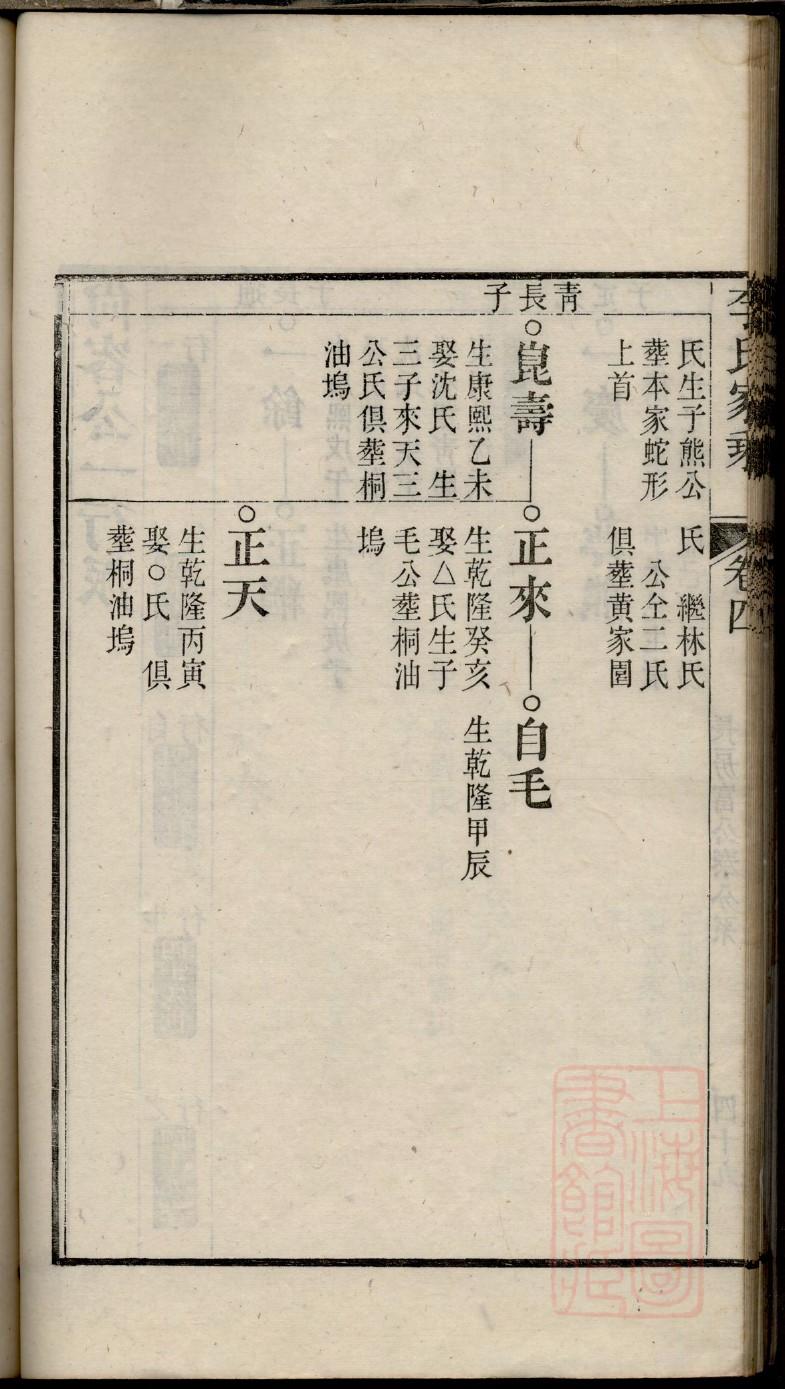 李氏家乘
卷四
氏生子熊公
塟本家蛇形
上首
氏　繼林氏
公仝二氏
俱塟黄家園
青長子
○崑壽
生康熙乙未
娶沈氏　生
三子來天三
公氏俱塟桐
油塢
○正來
生乾隆癸亥
娶△氏生子
毛公塟桐油
塢
○自毛
生乾隆甲辰
○正天
生乾隆丙寅
娶○氏　俱
塟桐油塢
上海圖
書館藏